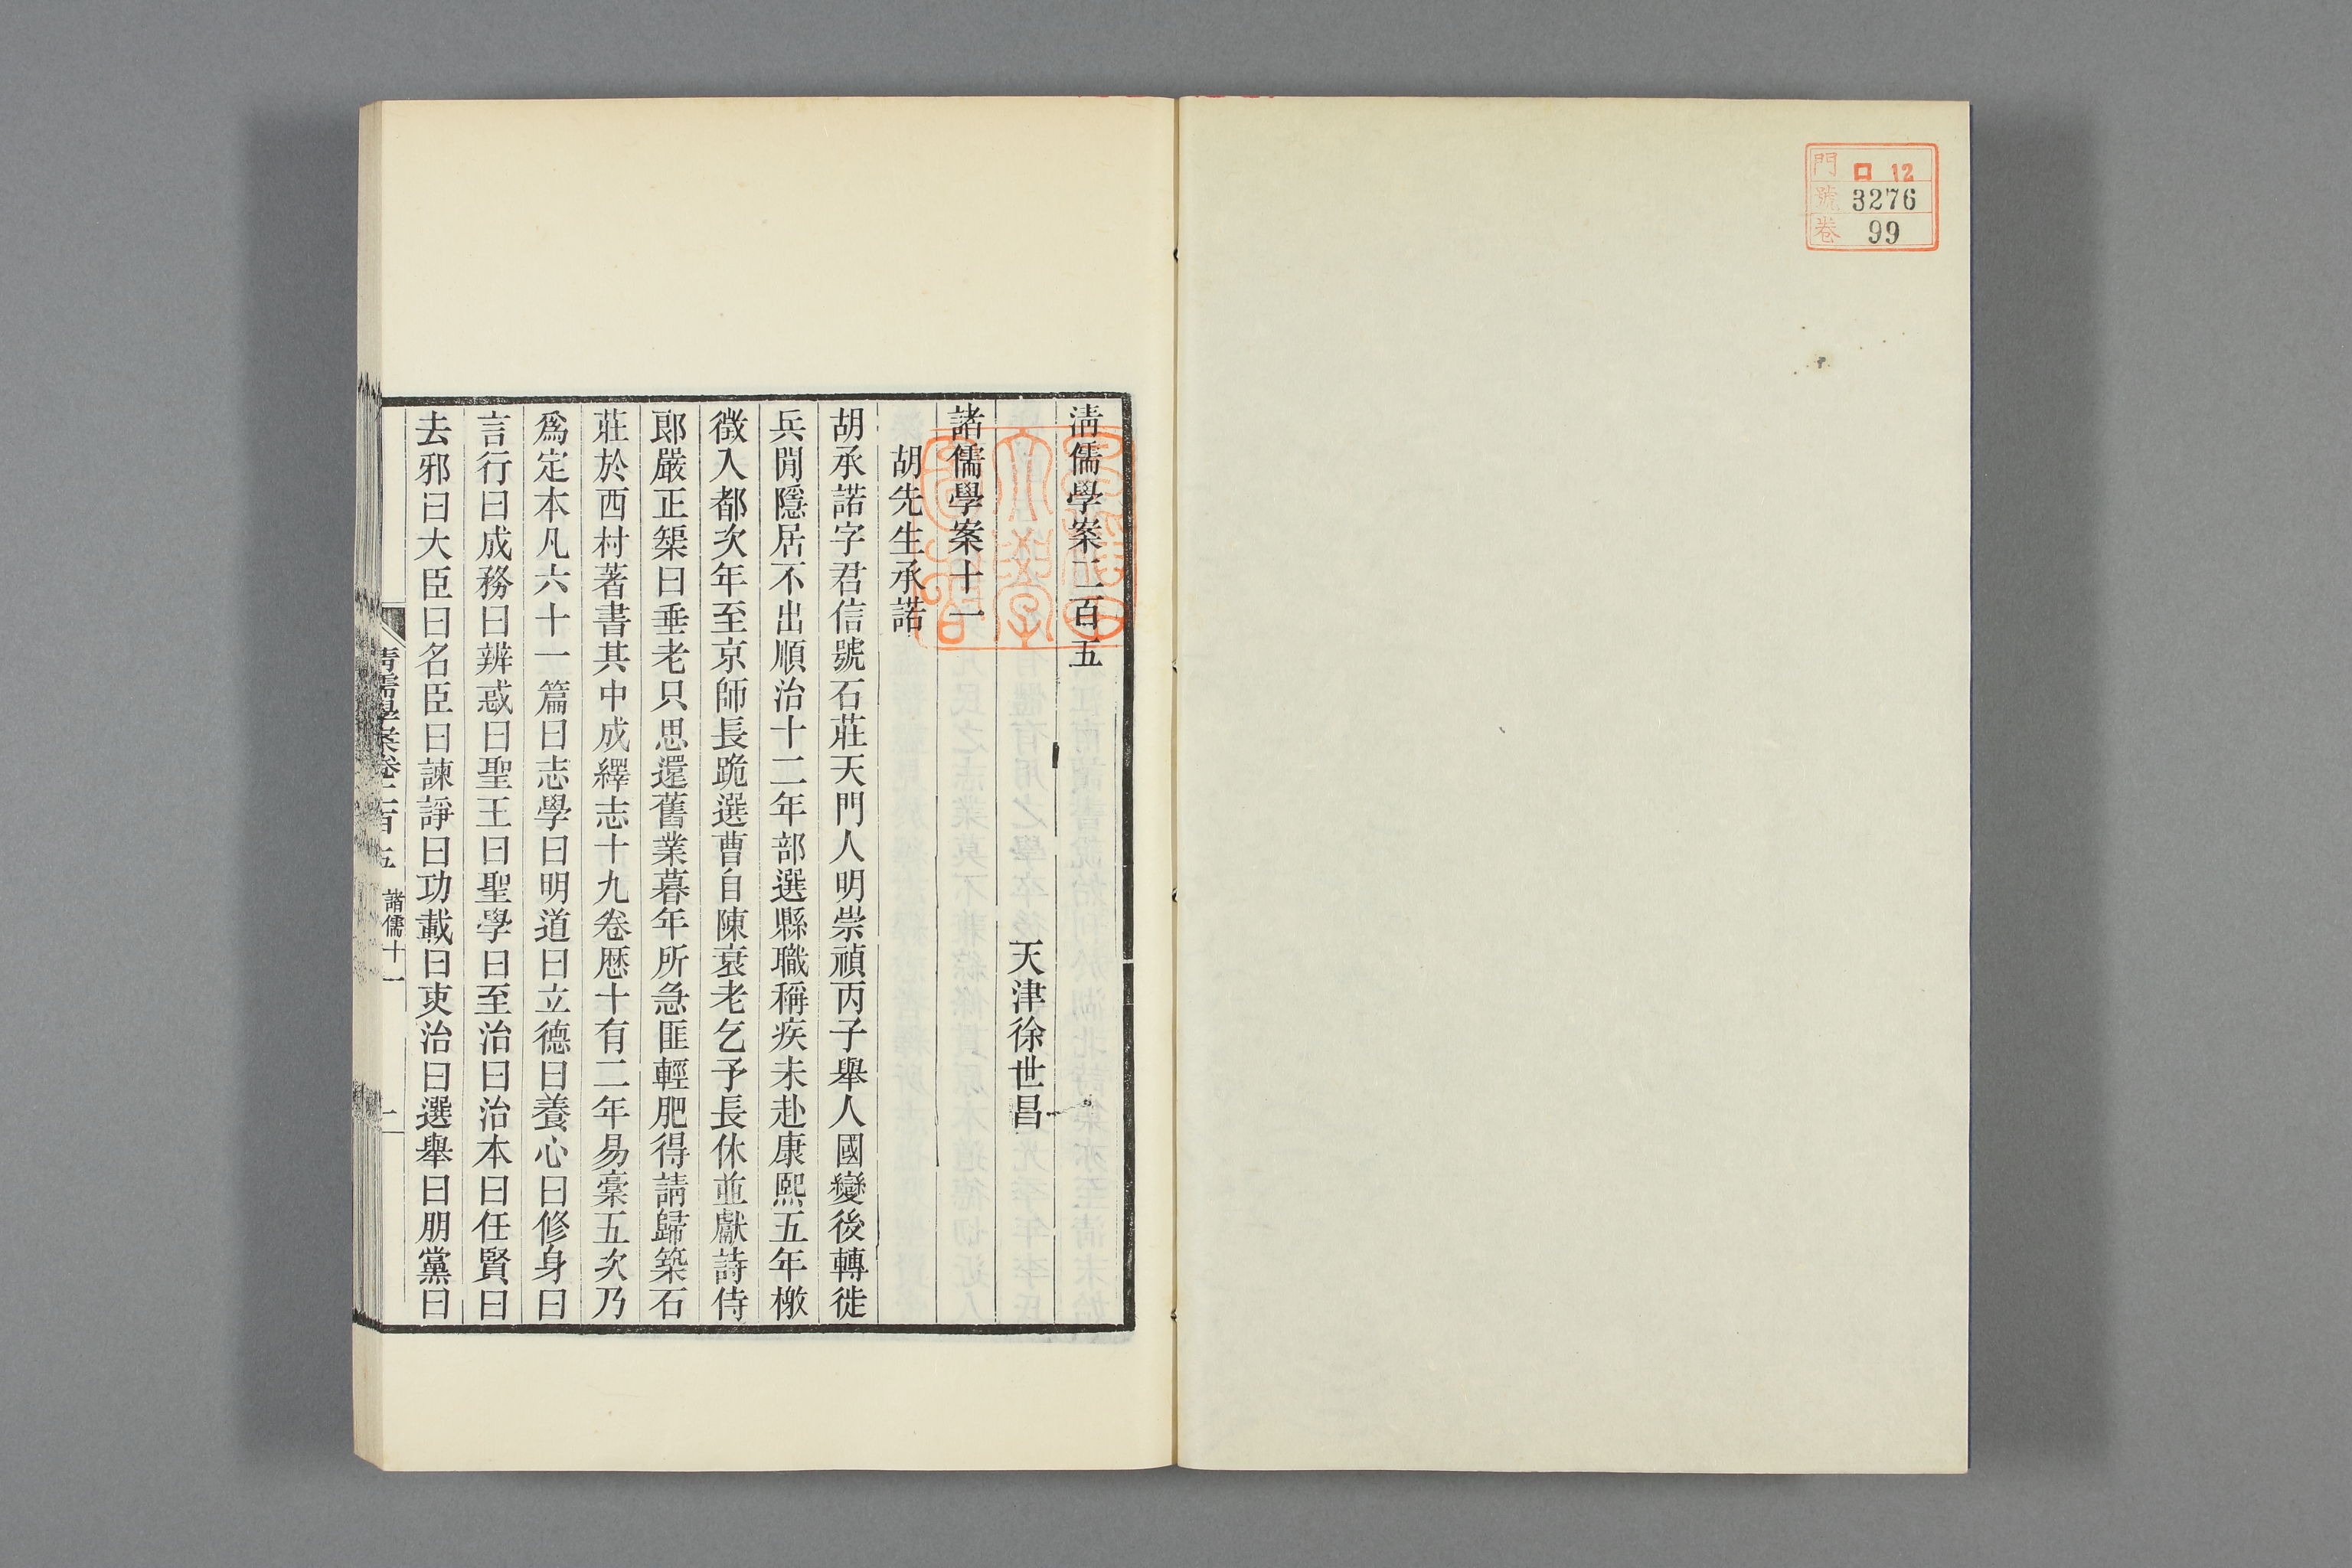 門 口 12
號 3276
卷 99
清儒學案二百五
天津徐世昌
諸儒學案十一
胡先生承諾
胡承諾字君信號石莊天門人明崇禎丙子舉人國變後轉徙
兵閒隱居不出順治十二年部選縣職稱疾未赴康熙五年檄
徵入都次年至京師長跪選曹自陳衰老乞予長休並獻詩侍
郎嚴正榘曰垂老只思還舊業暮年所急匪輕肥得請歸築石
莊於西村著書其中成繹志十九卷歷十有二年易稾五次乃
爲定本凡六十一篇曰志學曰明道曰立德曰養心曰修身曰
言行曰成務曰辨惑曰聖王曰聖學曰至治曰治本曰任賢曰
去邪曰大臣曰名臣曰諫諍曰功載曰吏治曰選舉曰朋黨曰
清儒學案卷二百五 諸儒十一 一